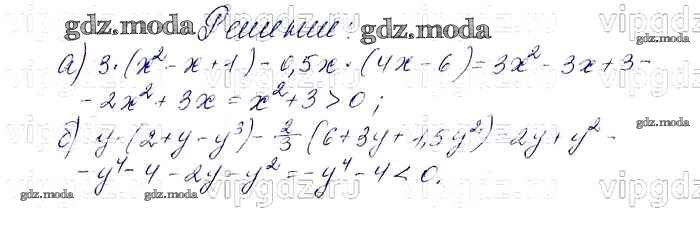 gdz.moda Решение: gdz.moda
а) 3·(x² - x + 1) - 0,5x·(4x - 6) = 3x² - 3x + 3 -
- 2x² + 3x = x² + 3 > 0;
gdz.moda
б) y·(2 + y - y³) - 2/3 (6 + 3y + 1,5y²) = 2y + y² -
- y⁴ - 4 - 2y - y² = -y⁴ - 4 < 0.
gdz.moda gdz.moda gdz.moda